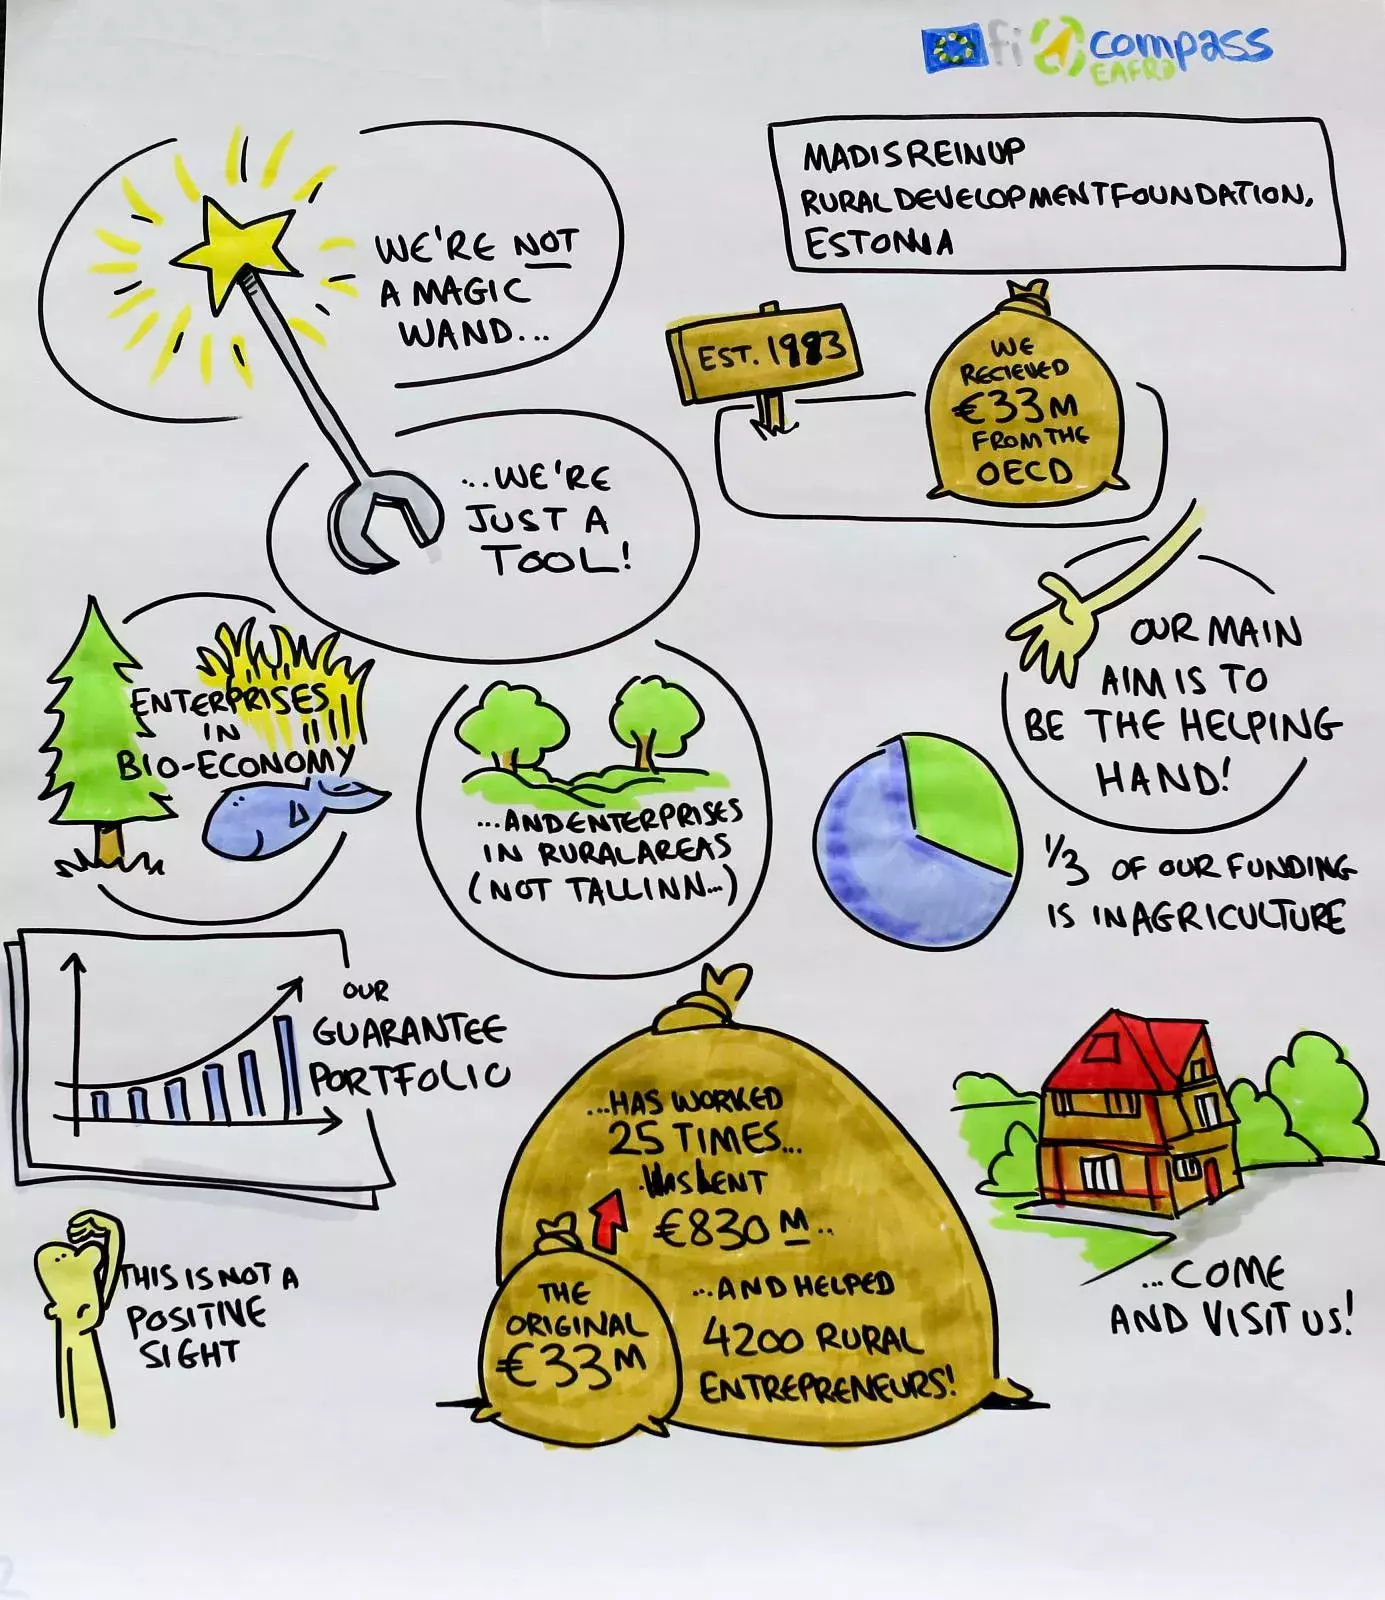 fi compass
EAFRD
MADIS REINUP
RURAL DEVELOPMENT FOUNDATION,
ESTONIA
WE'RE NOT
A MAGIC
WAND...
...WE'RE
JUST A
TOOL!
EST. 1993
WE
RECIEVED
€33M
FROM THE
OECD
OUR MAIN
AIM IS TO
BE THE HELPING
HAND!
ENTERPRISES
IN
BIO-ECONOMY
...AND ENTERPRISES
IN RURAL AREAS
(NOT TALLINN...)
1/3 OF OUR FUNDING
IS IN AGRICULTURE
OUR
GUARANTEE
PORTFOLIO
THIS IS NOT A
POSITIVE
SIGHT
...HAS WORKED
25 TIMES...
HAS LENT
€830M...
...AND HELPED
4200 RURAL
ENTREPRENEURS!
THE
ORIGINAL
€33M
...COME
AND VISIT US!